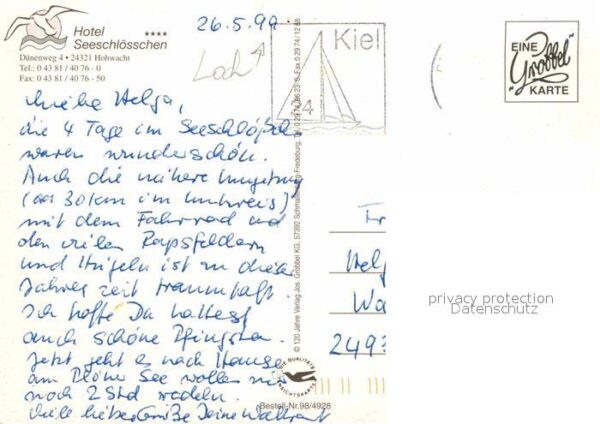 Hotel ****
Seeschlösschen
Dünenweg 4 • 24321 Hohwacht
Tel.: 0 43 81 / 40 76 - 0
Fax: 0 43 81 / 40 76 - 50
26.5.99
Loch
Kiel
4
EINE
"Gröbbel"
KARTE
Liebe Helga,
die 4 Tage im Seeschlößchen
waren wunderschön.
Auch die nähere Umgebung
(ca 30 km im Umkreis)
mit dem Fahrrad und
den vielen Rapsfeldern
und Hügeln ist zu dieser
Jahreszeit traumhaft.
Ich hoffe Du hattest
auch schöne Pfingsten.
Jetzt geht es nach Hause
am Plöner See wollen wir
noch 2 Std radeln.
Viele liebe Grüße Deine Waltraut
© 120 Jahre Verlag Jos. Gröbbel KG, 57392 Schmallenberg-Fredeburg, Tel.
Fr
Hel
Wa
2493
privacy protection
Datenschutz
DIE QUALITÄTS
ANSICHTSKARTE
Bestell-Nr. 98/4928